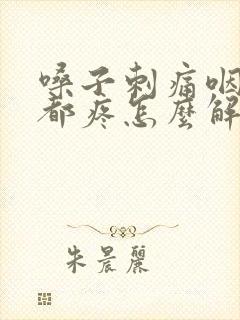 嗓子刺痛咽
都疼怎麼解
朱晨麗